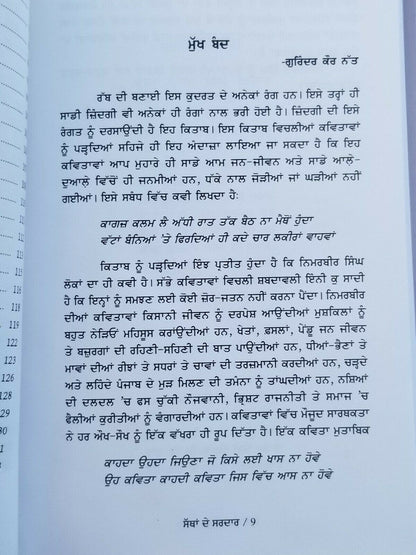 ਮੁੱਖ ਬੰਦ
-ਗੁਰਿੰਦਰ ਕੌਰ ਨੱਤ
ਰੱਬ ਦੀ ਬਣਾਈ ਇਸ ਕੁਦਰਤ ਦੇ ਅਨੇਕਾਂ ਰੰਗ ਹਨ। ਇਸੇ ਤਰ੍ਹਾਂ ਹੀ
ਸਾਡੀ ਜ਼ਿੰਦਗੀ ਵੀ ਅਨੇਕਾਂ ਹੀ ਰੰਗਾਂ ਨਾਲ ਭਰੀ ਹੋਈ ਹੈ। ਜ਼ਿੰਦਗੀ ਦੀ ਇਸੇ
ਰੰਗਤ ਨੂੰ ਦਰਸਾਉਂਦੀ ਹੈ ਇਹ ਕਿਤਾਬ। ਇਸ ਕਿਤਾਬ ਵਿਚਲੀਆਂ ਕਵਿਤਾਵਾਂ
ਨੂੰ ਪੜ੍ਹਦਿਆਂ ਸਹਿਜੇ ਹੀ ਇਹ ਅੰਦਾਜ਼ਾ ਲਾਇਆ ਜਾ ਸਕਦਾ ਹੈ ਕਿ ਇਹ
ਕਵਿਤਾਵਾਂ ਆਪ ਮੁਹਾਰੇ ਹੀ ਸਾਡੇ ਆਮ ਜਨ-ਜੀਵਨ ਅਤੇ ਸਾਡੇ ਆਲੇ-
ਦੁਆਲੇ ਵਿੱਚੋਂ ਹੀ ਜਨਮੀਆਂ ਹਨ, ਧੱਕੇ ਨਾਲ ਜੋੜੀਆਂ ਜਾਂ ਘੜੀਆਂ ਨਹੀਂ
ਗਈਆਂ। ਇਸੇ ਸਬੰਧ ਵਿੱਚ ਕਵੀ ਲਿਖਦਾ ਹੈ:
ਕਾਗਜ਼ ਕਲਮ ਲੈ ਅੱਧੀ ਰਾਤ ਤੱਕ ਬੈਠ ਨਾ ਮੈਥੋਂ ਹੁੰਦਾ
ਵੱਟਾਂ ਬੰਨਿਆਂ 'ਤੇ ਫਿਰਦਿਆਂ ਹੀ ਕਦੇ ਚਾਰ ਲਕੀਰਾਂ ਵਾਹਵਾਂ
ਕਿਤਾਬ ਨੂੰ ਪੜ੍ਹਦਿਆਂ ਇੰਝ ਪ੍ਰਤੀਤ ਹੁੰਦਾ ਹੈ ਕਿ ਨਿਮਰਬੀਰ ਸਿੰਘ
ਲੋਕਾਂ ਦਾ ਹੀ ਕਵੀ ਹੈ। ਸੱਭੇ ਕਵਿਤਾਵਾਂ ਵਿਚਲੀ ਸ਼ਬਦਾਵਲੀ ਇੰਨੀ ਕੁ ਸਾਦੀ
ਹੈ ਕਿ ਇਨ੍ਹਾਂ ਨੂੰ ਸਮਝਣ ਲਈ ਕੋਈ ਜ਼ੋਰ-ਜਤਨ ਨਹੀਂ ਕਰਨਾ ਪੈਂਦਾ। ਨਿਮਰਬੀਰ
ਦੀਆਂ ਕਵਿਤਾਵਾਂ ਕਿਸਾਨੀ ਜੀਵਨ ਨੂੰ ਦਰਪੇਸ਼ ਆਉਂਦੀਆਂ ਮੁਸ਼ਕਿਲਾਂ ਨੂੰ
ਬਹੁਤ ਨੇੜਿਓਂ ਮਹਿਸੂਸ ਕਰਾਉਂਦੀਆਂ ਹਨ, ਖੇਤਾਂ, ਫ਼ਸਲਾਂ, ਪੇਂਡੂ ਜਨ ਜੀਵਨ
ਤੇ ਬਜ਼ੁਰਗਾਂ ਦੀ ਰਹਿਣੀ-ਸਹਿਣੀ ਦੀ ਬਾਤ ਪਾਉਂਦੀਆਂ ਹਨ, ਧੀਆਂ-ਭੈਣਾਂ ਤੇ
ਮਾਵਾਂ ਦੀਆਂ ਰੀਝਾਂ ਤੇ ਸਧਰਾਂ ਤੇ ਚਾਵਾਂ ਦੀ ਤਰਜ਼ਮਾਨੀ ਕਰਦੀਆਂ ਹਨ, ਚੜ੍ਹਦੇ
ਅਤੇ ਲਹਿੰਦੇ ਪੰਜਾਬ ਦੇ ਮੁੜ ਮਿਲਣ ਦੀ ਤਮੰਨਾ ਨੂੰ ਤਾਂਘਦੀਆਂ ਹਨ, ਨਸ਼ਿਆਂ
ਦੀ ਦਲਦਲ 'ਚ ਫਸ ਚੁੱਕੀ ਨੌਜਵਾਨੀ, ਭ੍ਰਿਸ਼ਟ ਰਾਜਨੀਤੀ ਤੇ ਸਮਾਜ 'ਚ
ਫੈਲੀਆਂ ਕੁਰੀਤੀਆਂ ਨੂੰ ਵੰਗਾਰਦੀਆਂ ਹਨ। ਕਵਿਤਾਵਾਂ ਵਿੱਚ ਮੌਜੂਦ ਸਾਰਥਕਤਾ
ਨੇ ਹਰ ਔਖ-ਸੌਖ ਨੂੰ ਇੱਕ ਵੱਖਰਾ ਹੀ ਰੂਪ ਦਿੱਤਾ ਹੈ। ਇੱਕ ਕਵਿਤਾ ਮੁਤਾਬਿਕ
ਕਾਹਦਾ ਉਹਦਾ ਜਿਉਣਾ ਜੋ ਕਿਸੇ ਲਈ ਖਾਸ ਨਾ ਹੋਵੇ
ਉਹ ਕਵਿਤਾ ਕਾਹਦੀ ਕਵਿਤਾ ਜਿਸ ਵਿੱਚ ਆਸ ਨਾ ਹੋਵੇ
ਸੱਥਾਂ ਦੇ ਸਰਦਾਰ / 9
119
120
121
122
123
125
126
128